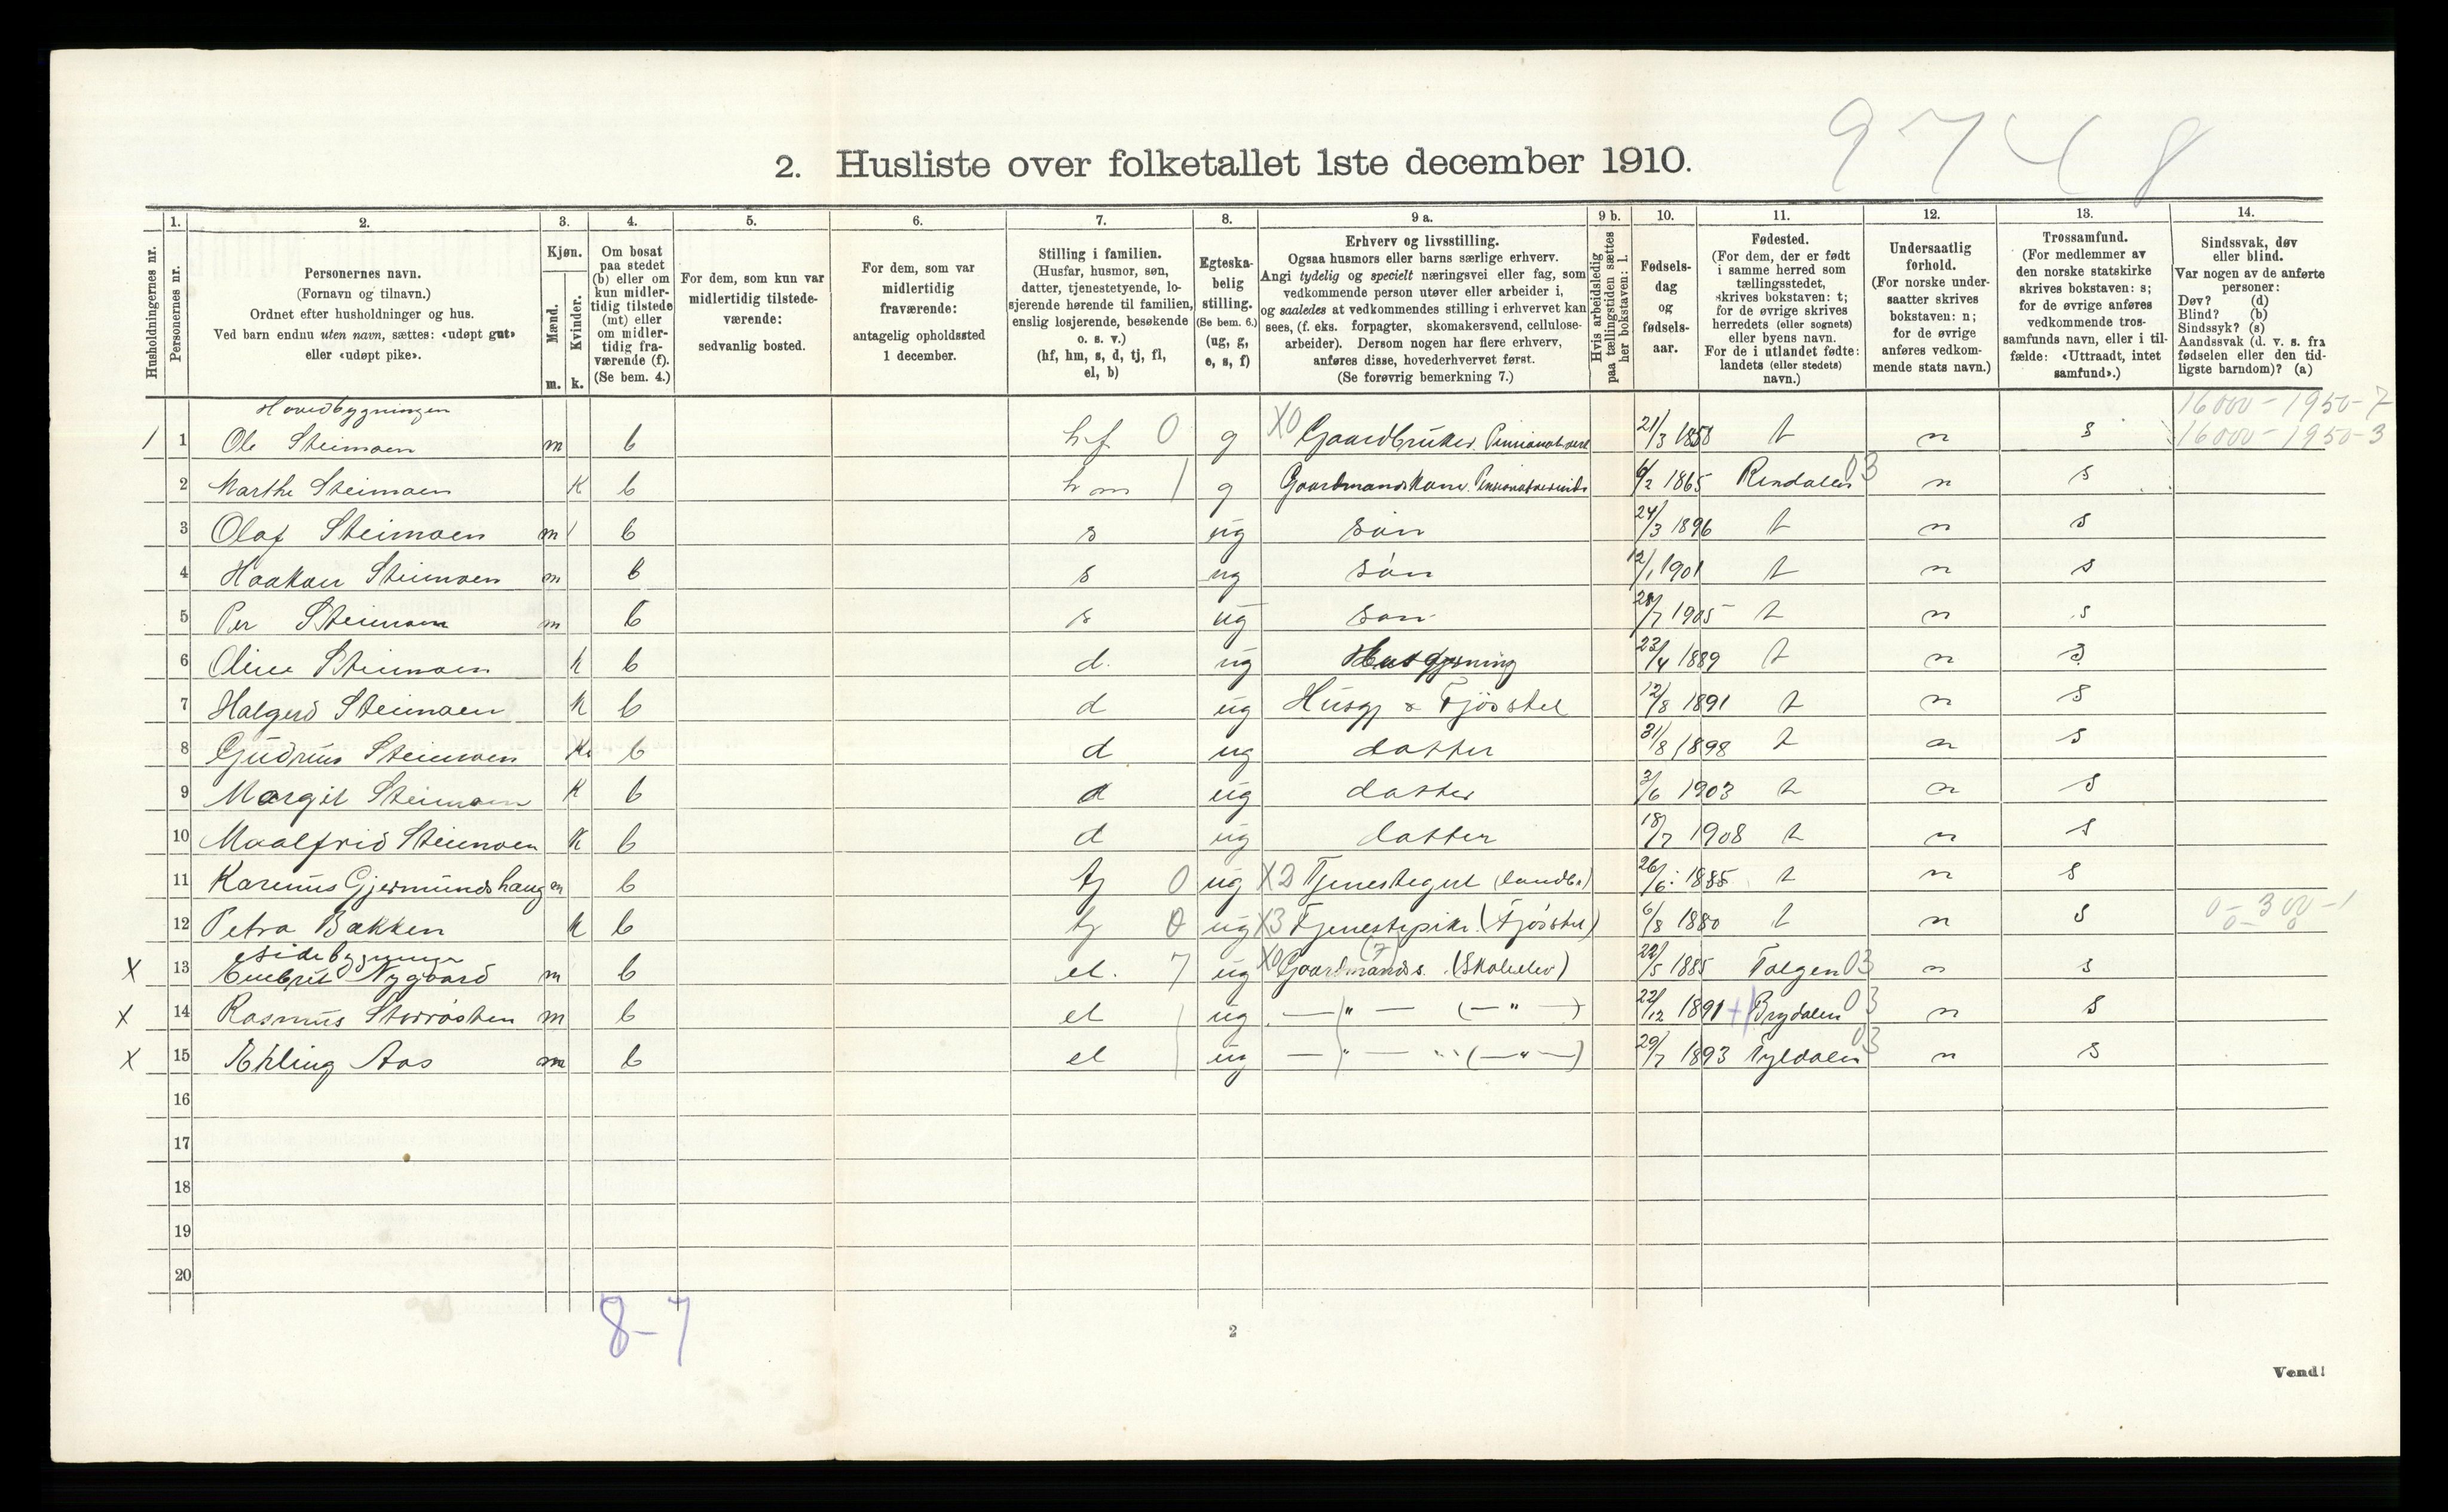 9748
2. Husliste over folketallet 1ste december 1910.
Husholdningernes nr.
1. Personernes nr.
2. Personernes navn.
(Fornavn og tilnavn.)
Ordnet efter husholdninger og hus.
Ved barn endnu uten navn, sættes: «udøpt gut»
eller «udøpt pike».
3. Kjøn.
Mænd. m.
Kvinder. k.
4. Om bosat
paa stedet
(b) eller om
kun midler-
tidig tilstede
(mt) eller
om midler-
tidig fra-
værende (f).
(Se bem. 4.)
5. For dem, som kun var
midlertidig tilstede-
værende:
sedvanlig bosted.
6. For dem, som var
midlertidig
fraværende:
antagelig opholdssted
1 december.
7. Stilling i familien.
(Husfar, husmor, søn,
datter, tjenestetyende, lo-
sjerende hørende til familien,
enslig losjerende, besøkende
o. s. v.)
(hf, hm, s, d, tj, fl,
el, b)
8. Egteska-
belig
stilling.
(Se bem. 6.)
(ug, g,
e, s, f)
9 a. Erhverv og livsstilling.
Ogsaa husmors eller barns særlige erhverv.
Angi tydelig og specielt næringsvei eller fag, som
vedkommende person utøver eller arbeider i,
og saaledes at vedkommendes stilling i erhvervet kan
sees, (f. eks. forpagter, skomakersvend, cellulose-
arbeider). Dersom nogen har flere erhverv,
anføres disse, hovederhvervet først.
(Se forøvrig bemerkning 7.)
9 b. Hvis arbeidsledig
paa tællingstiden sættes
her bokstaven: l.
10. Fødsels-
dag
og
fødsels-
aar.
11. Fødested.
(For dem, der er født
i samme herred som
tællingsstedet,
skrives bokstaven: t;
for de øvrige skrives
herredets (eller sognets)
eller byens navn.
For de i utlandet fødte:
landets (eller stedets)
navn.)
12. Undersaatlig
forhold.
(For norske under-
saatter skrives
bokstaven: n;
for de øvrige
anføres vedkom-
mende stats navn.)
13. Trossamfund.
(For medlemmer av
den norske statskirke
skrives bokstaven: s;
for de øvrige anføres
vedkommende tros-
samfunds navn, eller i til-
fælde: «Uttraadt, intet
samfund».)
14. Sindssvak, døv
eller blind.
Var nogen av de anførte
personer:
Døv? (d)
Blind? (b)
Sindssyk? (s)
Aandssvak (d. v. s. fra
fødselen eller den tid-
ligste barndom)? (a)
Hovedbygningen 16000-1950-7
1 1 Ole Steimoen m b hf 0 g X0 Gaardbruker. 21/3 1858 t n s 16000-1950-3
2 Marthe Steimoen K b hm 1 g 6/2 1865 Rendalen 03 n s
3 Olaf Steimoen m b s ug søn 24/3 1896 t n s
4 Haakon Steimoen m b s ug søn 12/1 1901 t n s
5 Per Steimoen m b s ug søn 28/7 1905 t n s
6 Oline Steimoen k b d. ug Husgjerning 23/4 1889 t n s
7 Halgerd Steimoen k b d ug Husgj & Fjøsstel 12/8 1891 t n s
8 Gudrun Steimoen K b d ug datter 31/8 1898 t n s
9 Margit Steimoen K b d ug datter 3/6 1903 t n s
10 Maalfrid Steimoen K b d ug datter 18/7 1908 t n s
11 Karenus Gjermundshaug m b tj 0 ug X2 Tjenestegut (landbr) 26/6 1885 t n s
12 Petra Bakken k b tj 0 ug X3 Tjenestepike (Fjøsstel) 6/8 1880 t n s 0-300-1
Sidebygningen
X 13 Embret Nygaard m b el. 7 ug X0 Gaardmands s. (7) (Skoleelev) 22/5 1885 Tolgen 03 n s
X 14 Rasmus Storrøsten m b el ug — " — (— " —) 22/12 1891 Brydalen 03 n s
X 15 Ehling Aas m b el ug — " — (— " —) 29/7 1893 Tyldalen 03 n s
16
17
18
19
20
8-7
2
Vend!